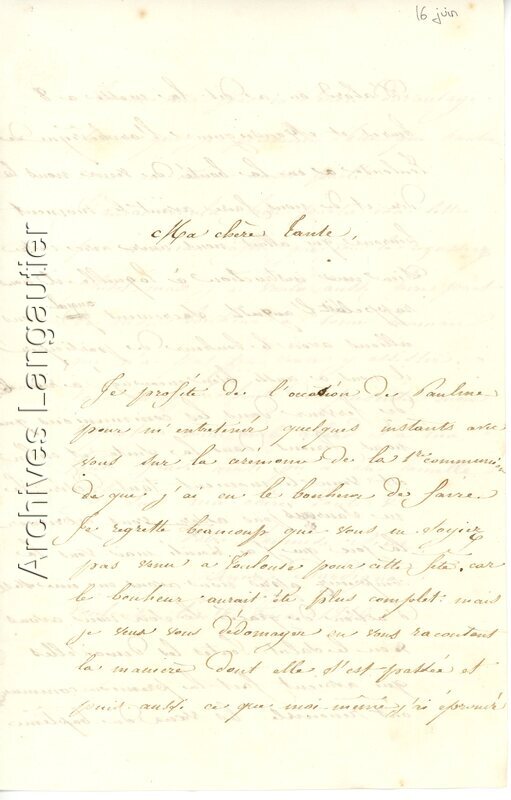 16 juin
Ma chère Tante,
Je profite de l'occasion de Pauline
pour m'entretenir quelques instants avec
vous sur la cérémonie de la 1re communion
de que j'ai eu le bonheur de faire.
Je regrette beaucoup que vous ne soyiez
pas venu a Toulouse pour cette fête, car
le bonheur aurait été plus complet: mais
je veux vous dédomager en vous racontant
la manière dont elle s'est passée et
puis aussi ce que moi-même j'ai éprouvé
Archives Langautier